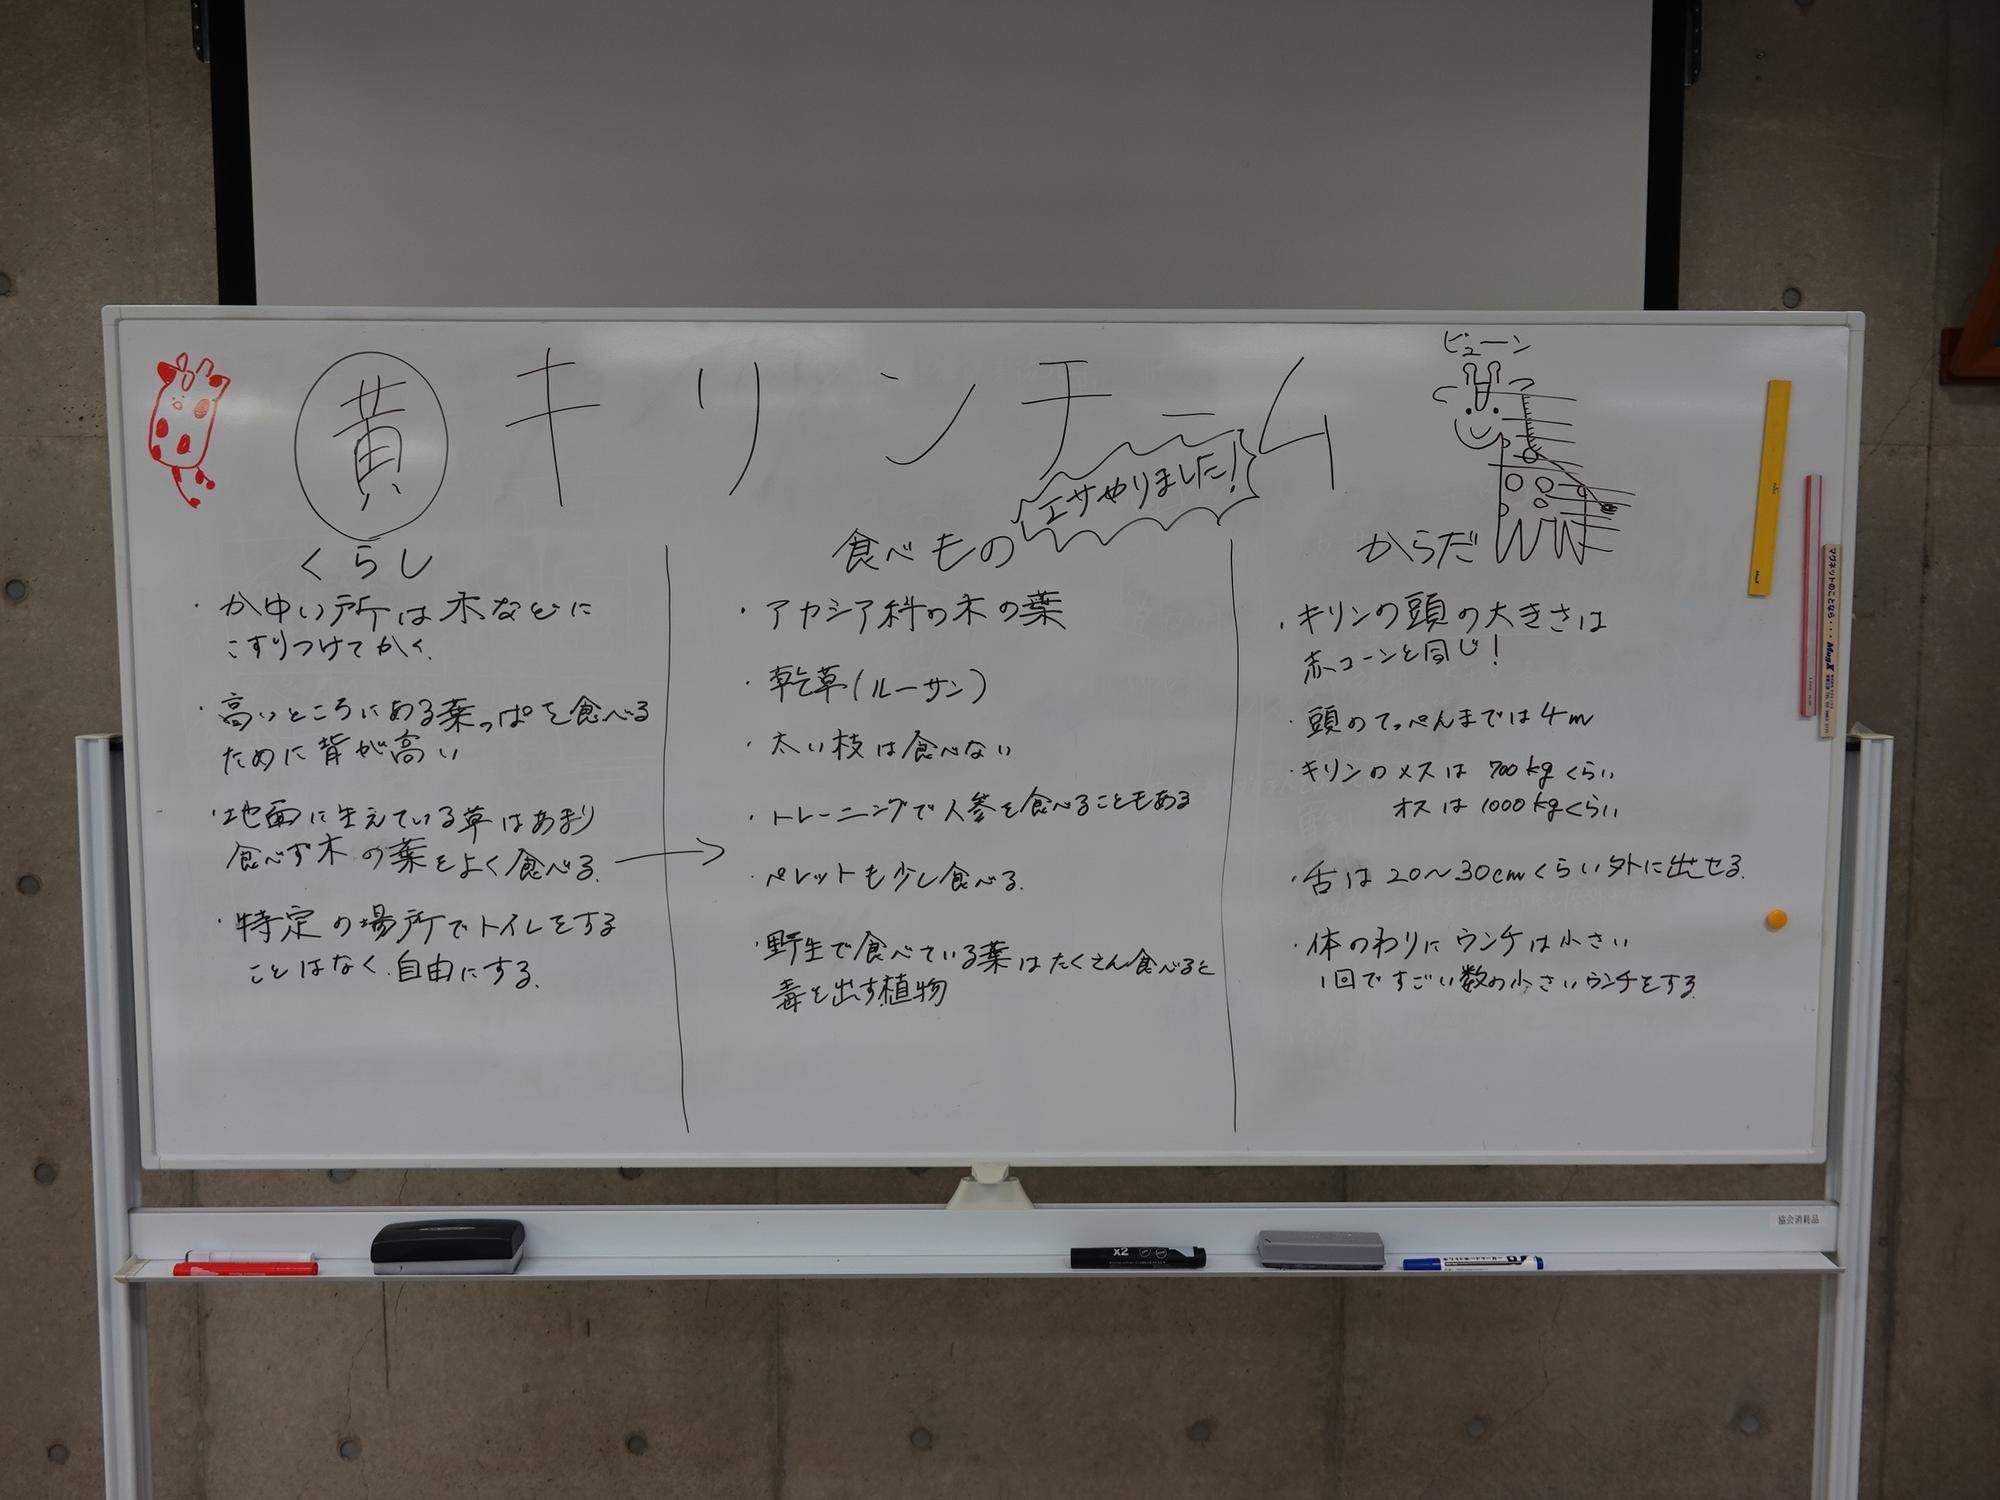 ビューン
黄 キリンチーム
エサやりました!
くらし
・かゆい所は木などに
こすりつけてかく.
・高いところにある葉っぱを食べる
ために背が高い
・地面に生えている草はあまり
食べず木の葉をよく食べる. →
・特定の場所でトイレをする
ことはなく.自由にする.
食べもの
・アカシア科の木の葉
・乾草(ルーサン)
・太い枝は食べない
・トレーニングで人参を食べることもある
・ペレットも少し食べる.
・野生で食べている葉はたくさん食べると
毒を出す植物
からだ
・キリンの頭の大きさは
赤コーンと同じ!
・頭のてっぺんまでは4m
・キリンのメスは 700kgくらい
オスは1000kgくらい
・舌は20〜30cmくらい外に出せる.
・体のわりにウンチは小さい
1回ですごい数の小さいウンチをする
マグネットのことなら・・・MagX
協会消耗品
x2
ホワイトボードマーカー